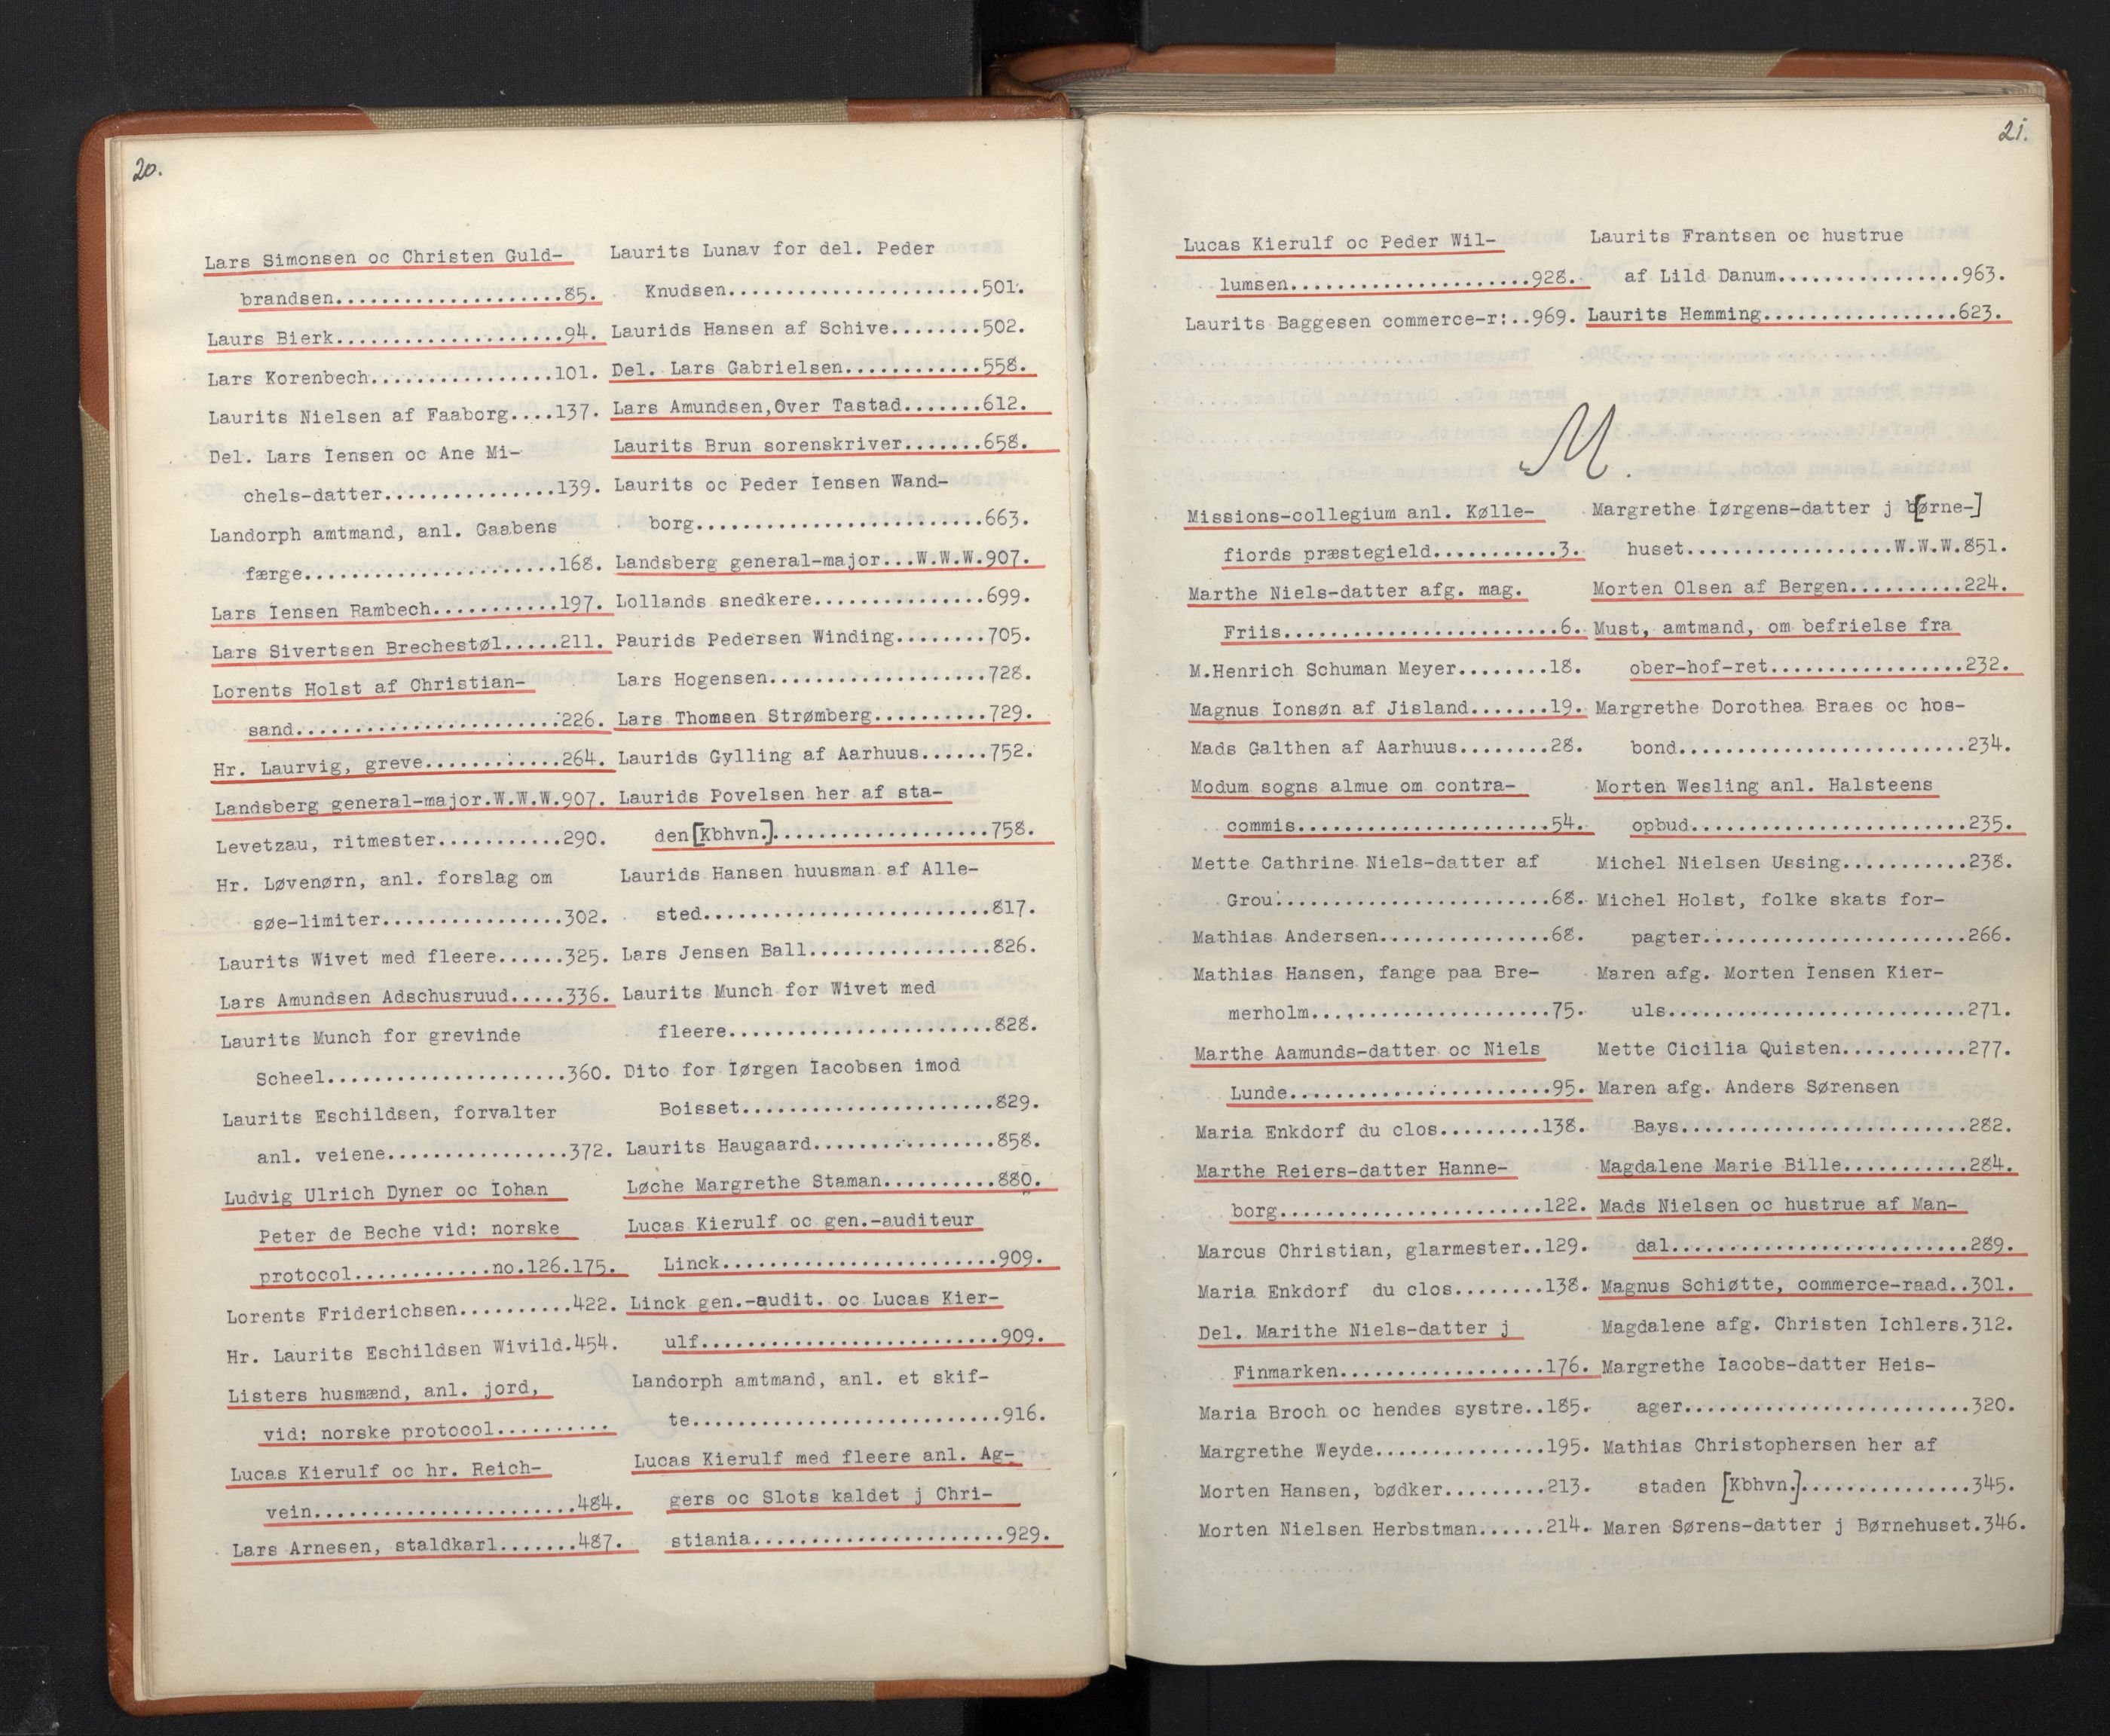 20.
Lars Simonsen oc Christen Guld-
brandsen....................85.
Laurs Bierk....................94.
Lars Korenbech................101.
Laurits Nielsen af Faaborg....137.
Del. Lars Iensen oc Ane Mi-
chels-datter...............139.
Landorph amtmand, anl. Gaabens
færge......................168.
Lars Iensen Rambech...........197.
Lars Sivertsen Brechestøl.....211.
Lorents Holst af Christian-
sand.......................226.
Hr. Laurvig, greve............264.
Landsberg general-major.W.W.W.907.
Levetzau, ritmester...........290.
Hr. Løvenørn, anl. forslag om
søe-limiter................302.
Laurits Wivet med fleere......325.
Lars Amundsen Adschusruud.....336.
Laurits Munch for grevinde
Scheel.....................360.
Laurits Eschildsen, forvalter
anl. veiene................372.
Ludvig Ulrich Dyner oc Iohan
Peter de Beche vid: norske
protocol............no.126.175.
Lorents Friderichsen..........422.
Hr. Laurits Eschildsen Wivild.454.
Listers husmænd, anl. jord,
vid: norske protocol..........
Lucas Kierulf oc hr. Reich-
vein.......................484.
Lars Arnesen, staldkarl.......487.
Laurits Lunav for del. Peder
Knudsen......................501.
Laurids Hansen af Schive........502.
Del. Lars Gabrielsen............558.
Lars Amundsen, Over Tastad.......612.
Laurits Brun sorenskriver.......658.
Laurits oc Peder Iensen Wand-
borg.........................663.
Landsberg general-major...W.W.W.907.
Lollands snedkere...............699.
Paurids Pedersen Winding........705.
Lars Hogensen...................728.
Lars Thomsen Strømberg..........729.
Laurids Gylling af Aarhuus......752.
Laurids Povelsen her af sta-
den [Kbhvn.]...................758.
Laurids Hansen huusman af Alle-
sted.........................817.
Lars Jensen Ball................826.
Laurits Munch for Wivet med
fleere.......................828.
Dito for Iørgen Iacobsen imod
Boisset......................829.
Laurits Haugaard................858.
Løche Margrethe Staman..........880.
Lucas Kierulf oc gen.-auditeur
Linck........................909.
Linck gen.-audit. oc Lucas Kier-
ulf..........................909.
Landorph amtmand, anl. et skif-
te...........................916.
Lucas Kierulf med fleere anl. Ag-
gers oc Slots kaldet j Chri-
stiania......................929.
21.
Lucas Kierulf oc Peder Wil-
lumsen.....................928.
Laurits Baggesen commerce-r:..969.
Laurits Frantsen oc hustrue
af Lild Danum................963.
Laurits Hemming.................623.
M.
Missions-collegium anl. Kølle-
fiords præstegield...........3.
Marthe Niels-datter afg. mag.
Friis........................6.
M.Henrich Schuman Meyer........18.
Magnus Ionsøn af Jisland.......19.
Mads Galthen af Aarhuus........28.
Modum sogns almue om contra-
commis......................54.
Mette Cathrine Niels-datter af
Grou........................68.
Mathias Andersen...............68.
Mathias Hansen, fange paa Bre-
merholm.....................75.
Marthe Aamunds-datter oc Niels
Lunde.......................95.
Maria Enkdorf du clos.........138.
Marthe Reiers-datter Hanne-
borg.......................122.
Marcus Christian, glarmester..129.
Maria Enkdorf du clos........138.
Del. Marithe Niels-datter j
Finmarken..................176.
Maria Broch oc hendes systre..185.
Margrethe Weyde...............195.
Morten Hansen, bødker.........213.
Morten Nielsen Herbstman......214.
Margrethe Iørgens-datter j b[ørne-]
huset..................W.W.W.851.
Morten Olsen af Bergen..........224.
Must, amtmand, om befrielse fra
ober-hof-ret.................232.
Margrethe Dorothea Braes oc hos-
bond.........................234.
Morten Wesling anl. Halsteens
opbud........................235.
Michel Nielsen Ussing...........238.
Michel Holst, folke skats for-
pagter.......................266.
Maren afg. Morten Iensen Kier-
uls..........................271.
Mette Cicilia Quisten...........277.
Maren afg. Anders Sørensen
Bays.........................282.
Magdalene Marie Bille...........284.
Mads Nielsen oc hustrue af Man-
dal..........................289.
Magnus Schiøtte, commerce-raad..301.
Magdalene afg. Christen Ichlers.312.
Margrethe Iacobs-datter Heis-
ager.........................320.
Mathias Christophersen her af
staden [Kbhvn.]...............345.
Maren Sørens-datter j Børnehuset.346.